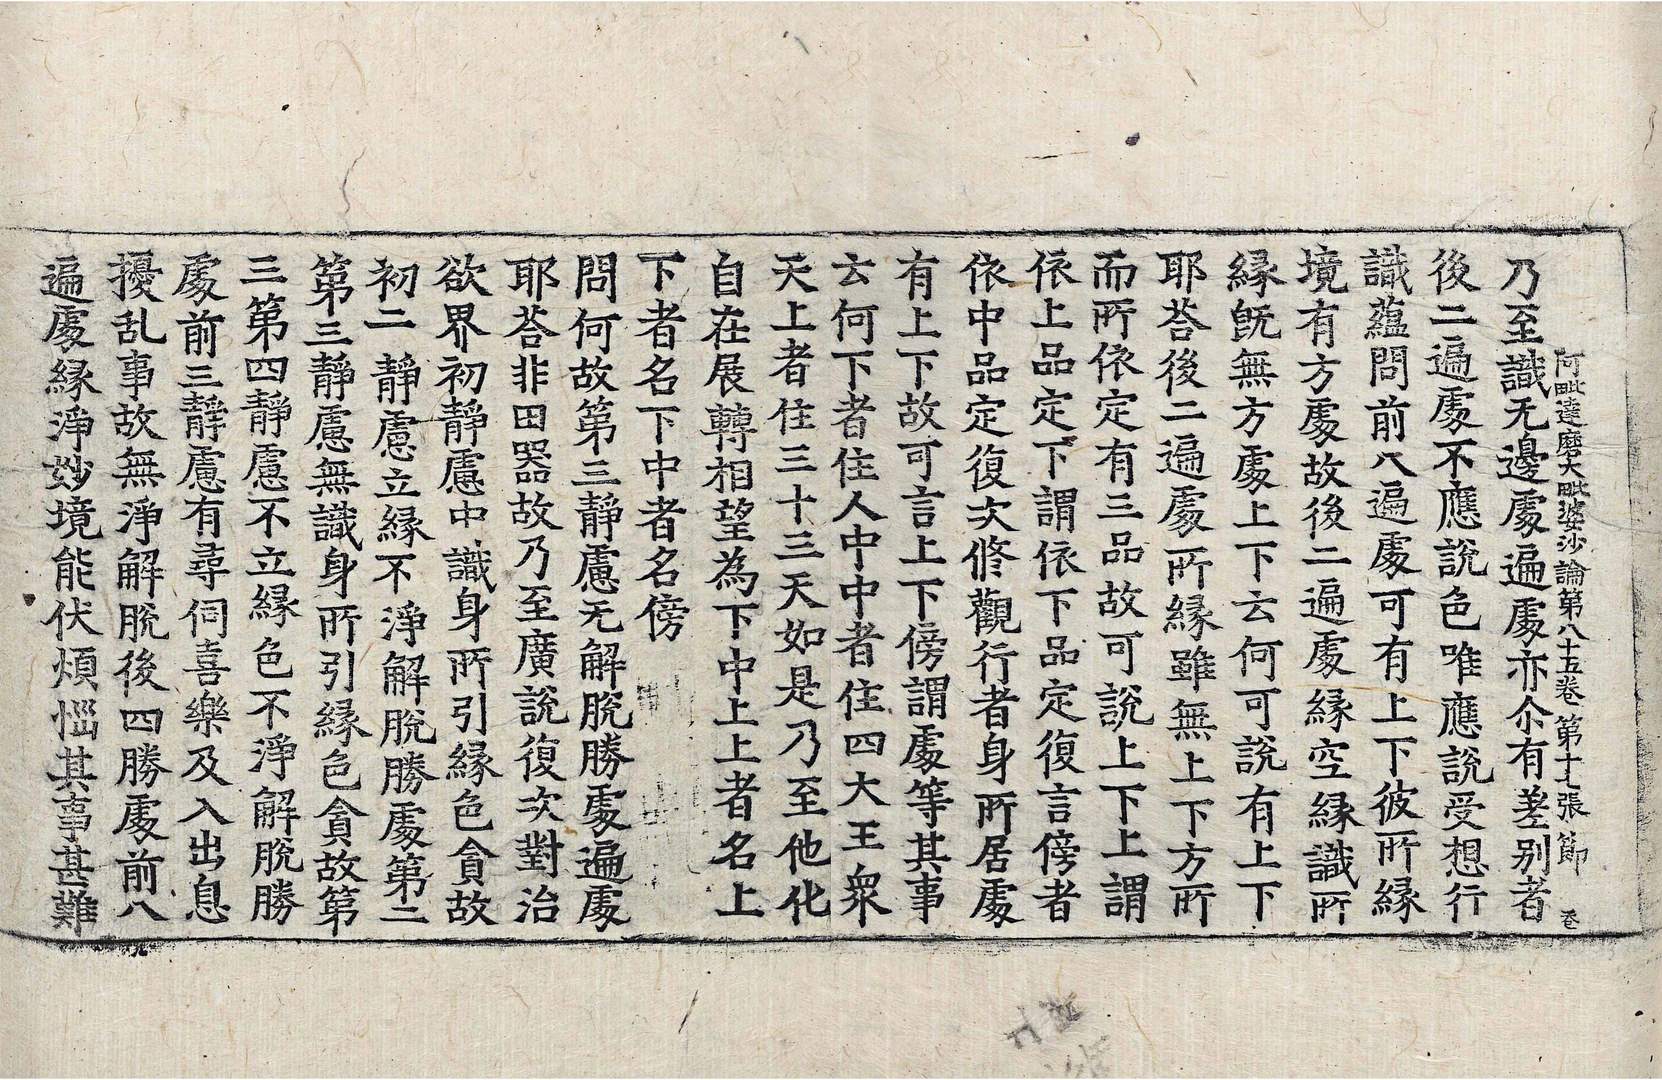 阿毗達磨大毗婆沙論第八十五卷 第十七張 節
乃至識无邊處遍處亦尒有差别者
後二遍處不應說色唯應說受想行
識蘊問前八遍處可有上下彼所緣
境有方處故後二遍處緣空緣識所
緣旣無方處上下云何可說有上下
耶荅後二遍處所緣雖無上下方所
而所依定有三品故可說上下上謂
依上品定下謂依下品定復言傍者
依中品定復次修觀行者身所居處
有上下故可言上下傍謂處等其事
云何下者住人中中者住四大王衆
天上者住三十三天如是乃至他化
自在展轉相望為下中上上者名上
下者名下中者名傍
問何故第三靜慮无解脫勝處遍處
耶荅非田器故乃至廣說復次對治
欲界初靜慮中識身所引緣色貪故
初二靜慮立緣不淨解脫勝處第二
第三靜慮無識身所引緣色貪故第
三第四靜慮不立緣色不淨解脫勝
處前三靜慮有尋伺喜樂及入出息
擾乱事故無淨解脫後四勝處前八
遍處緣淨妙境能伏煩惱其事甚難